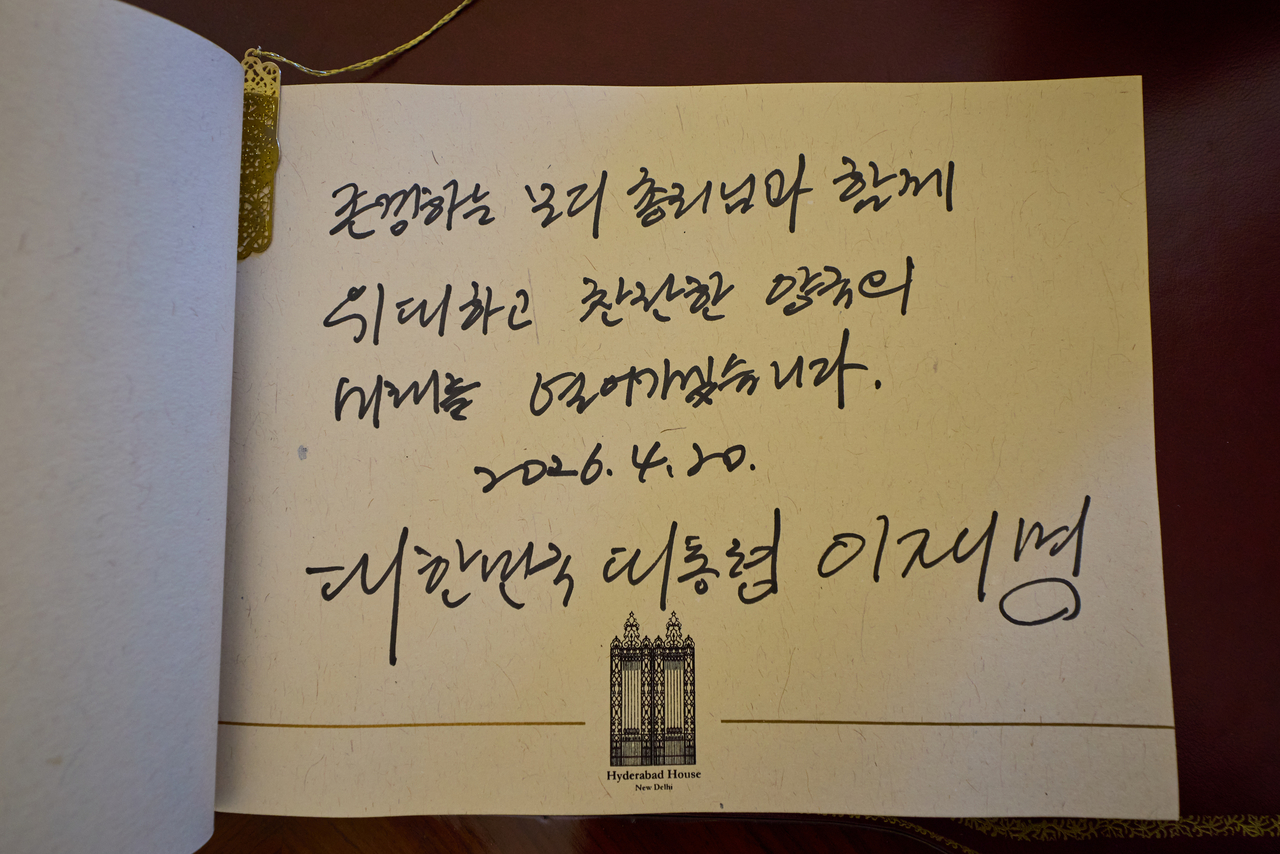 존경하는 모디 총리님과 함께
위대하고 찬란한 양국의
미래를 열어가겠습니다.
2026.4.20.
대한민국 대통령 이재명
Hyderabad House
New Delhi